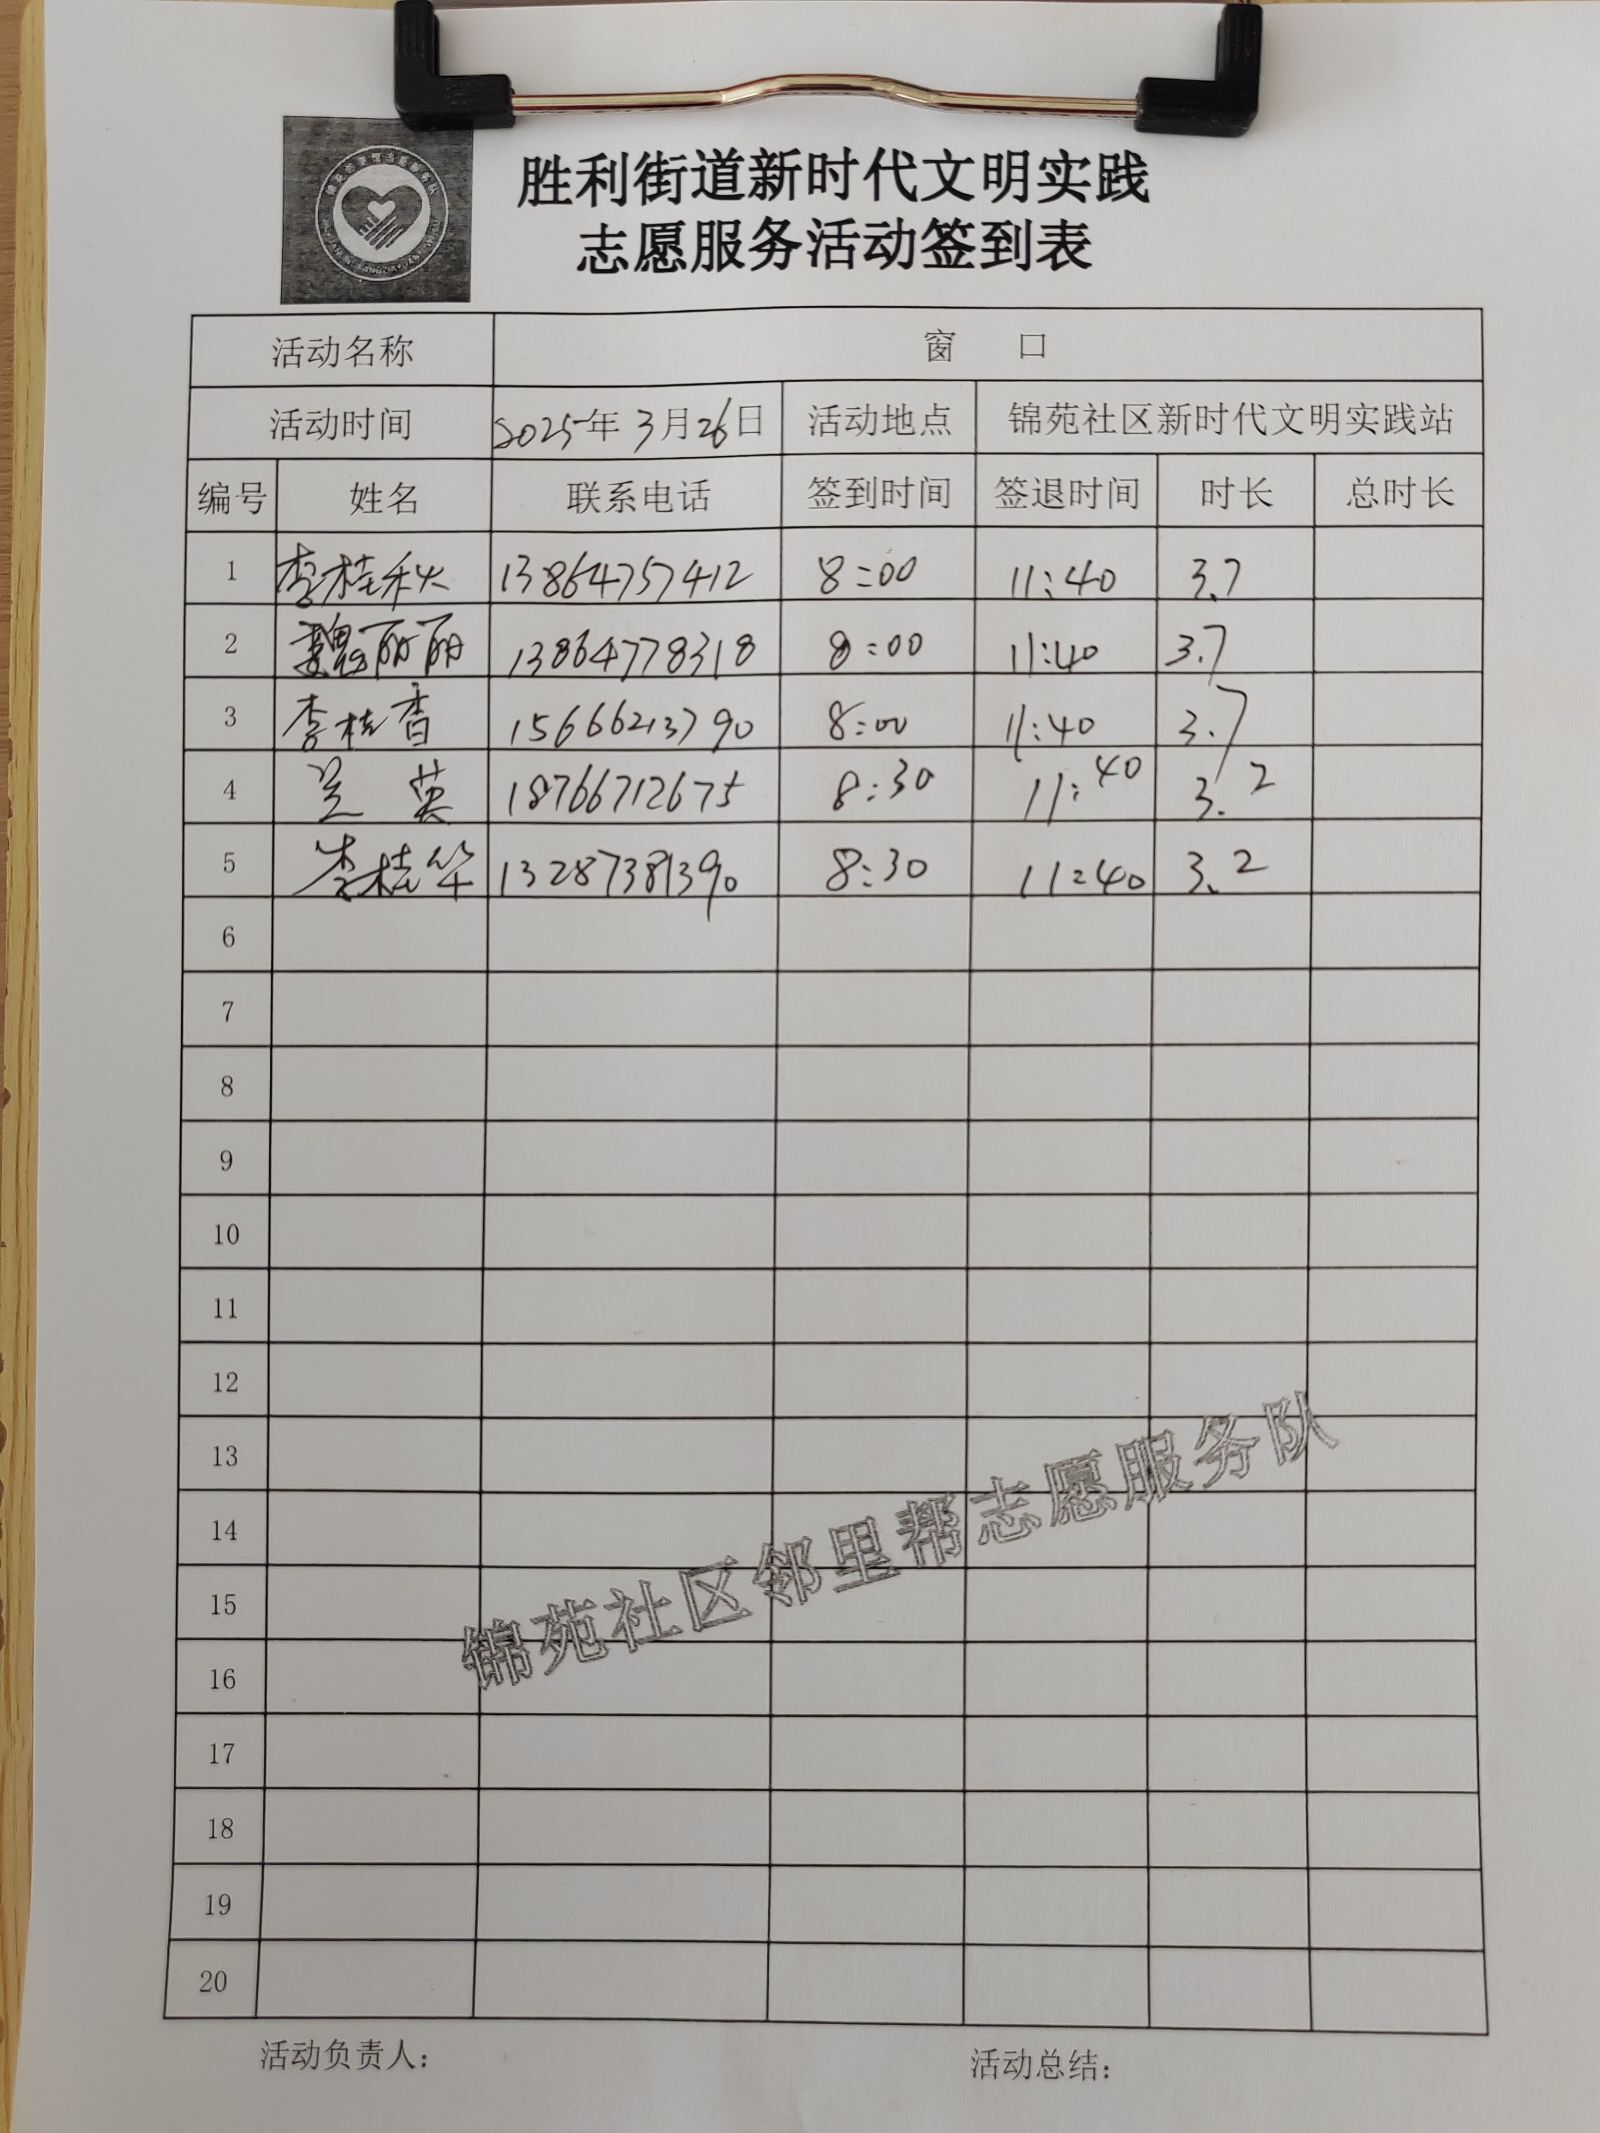 胜利街道新时代文明实践
志愿服务活动签到表
活动名称 窗 口
活动时间 2025年3月26日 活动地点 锦苑社区新时代文明实践站
编号 姓名 联系电话 签到时间 签退时间 时长 总时长
1 李桂秋 13864757412 8:00 11:40 3.7
2 魏丽丽 13864778318 8:00 11:40 3.7
3 李桂香 15666213790 8:00 11:40 3.7
4 兰英 18766712675 8:30 11:40 3.2
5 李桂华 13287381390 8:30 11:40 3.2
6
7
8
9
10
11
12
13
14
15
16
17
18
19
20
锦苑社区邻里帮志愿服务队
活动负责人： 活动总结：